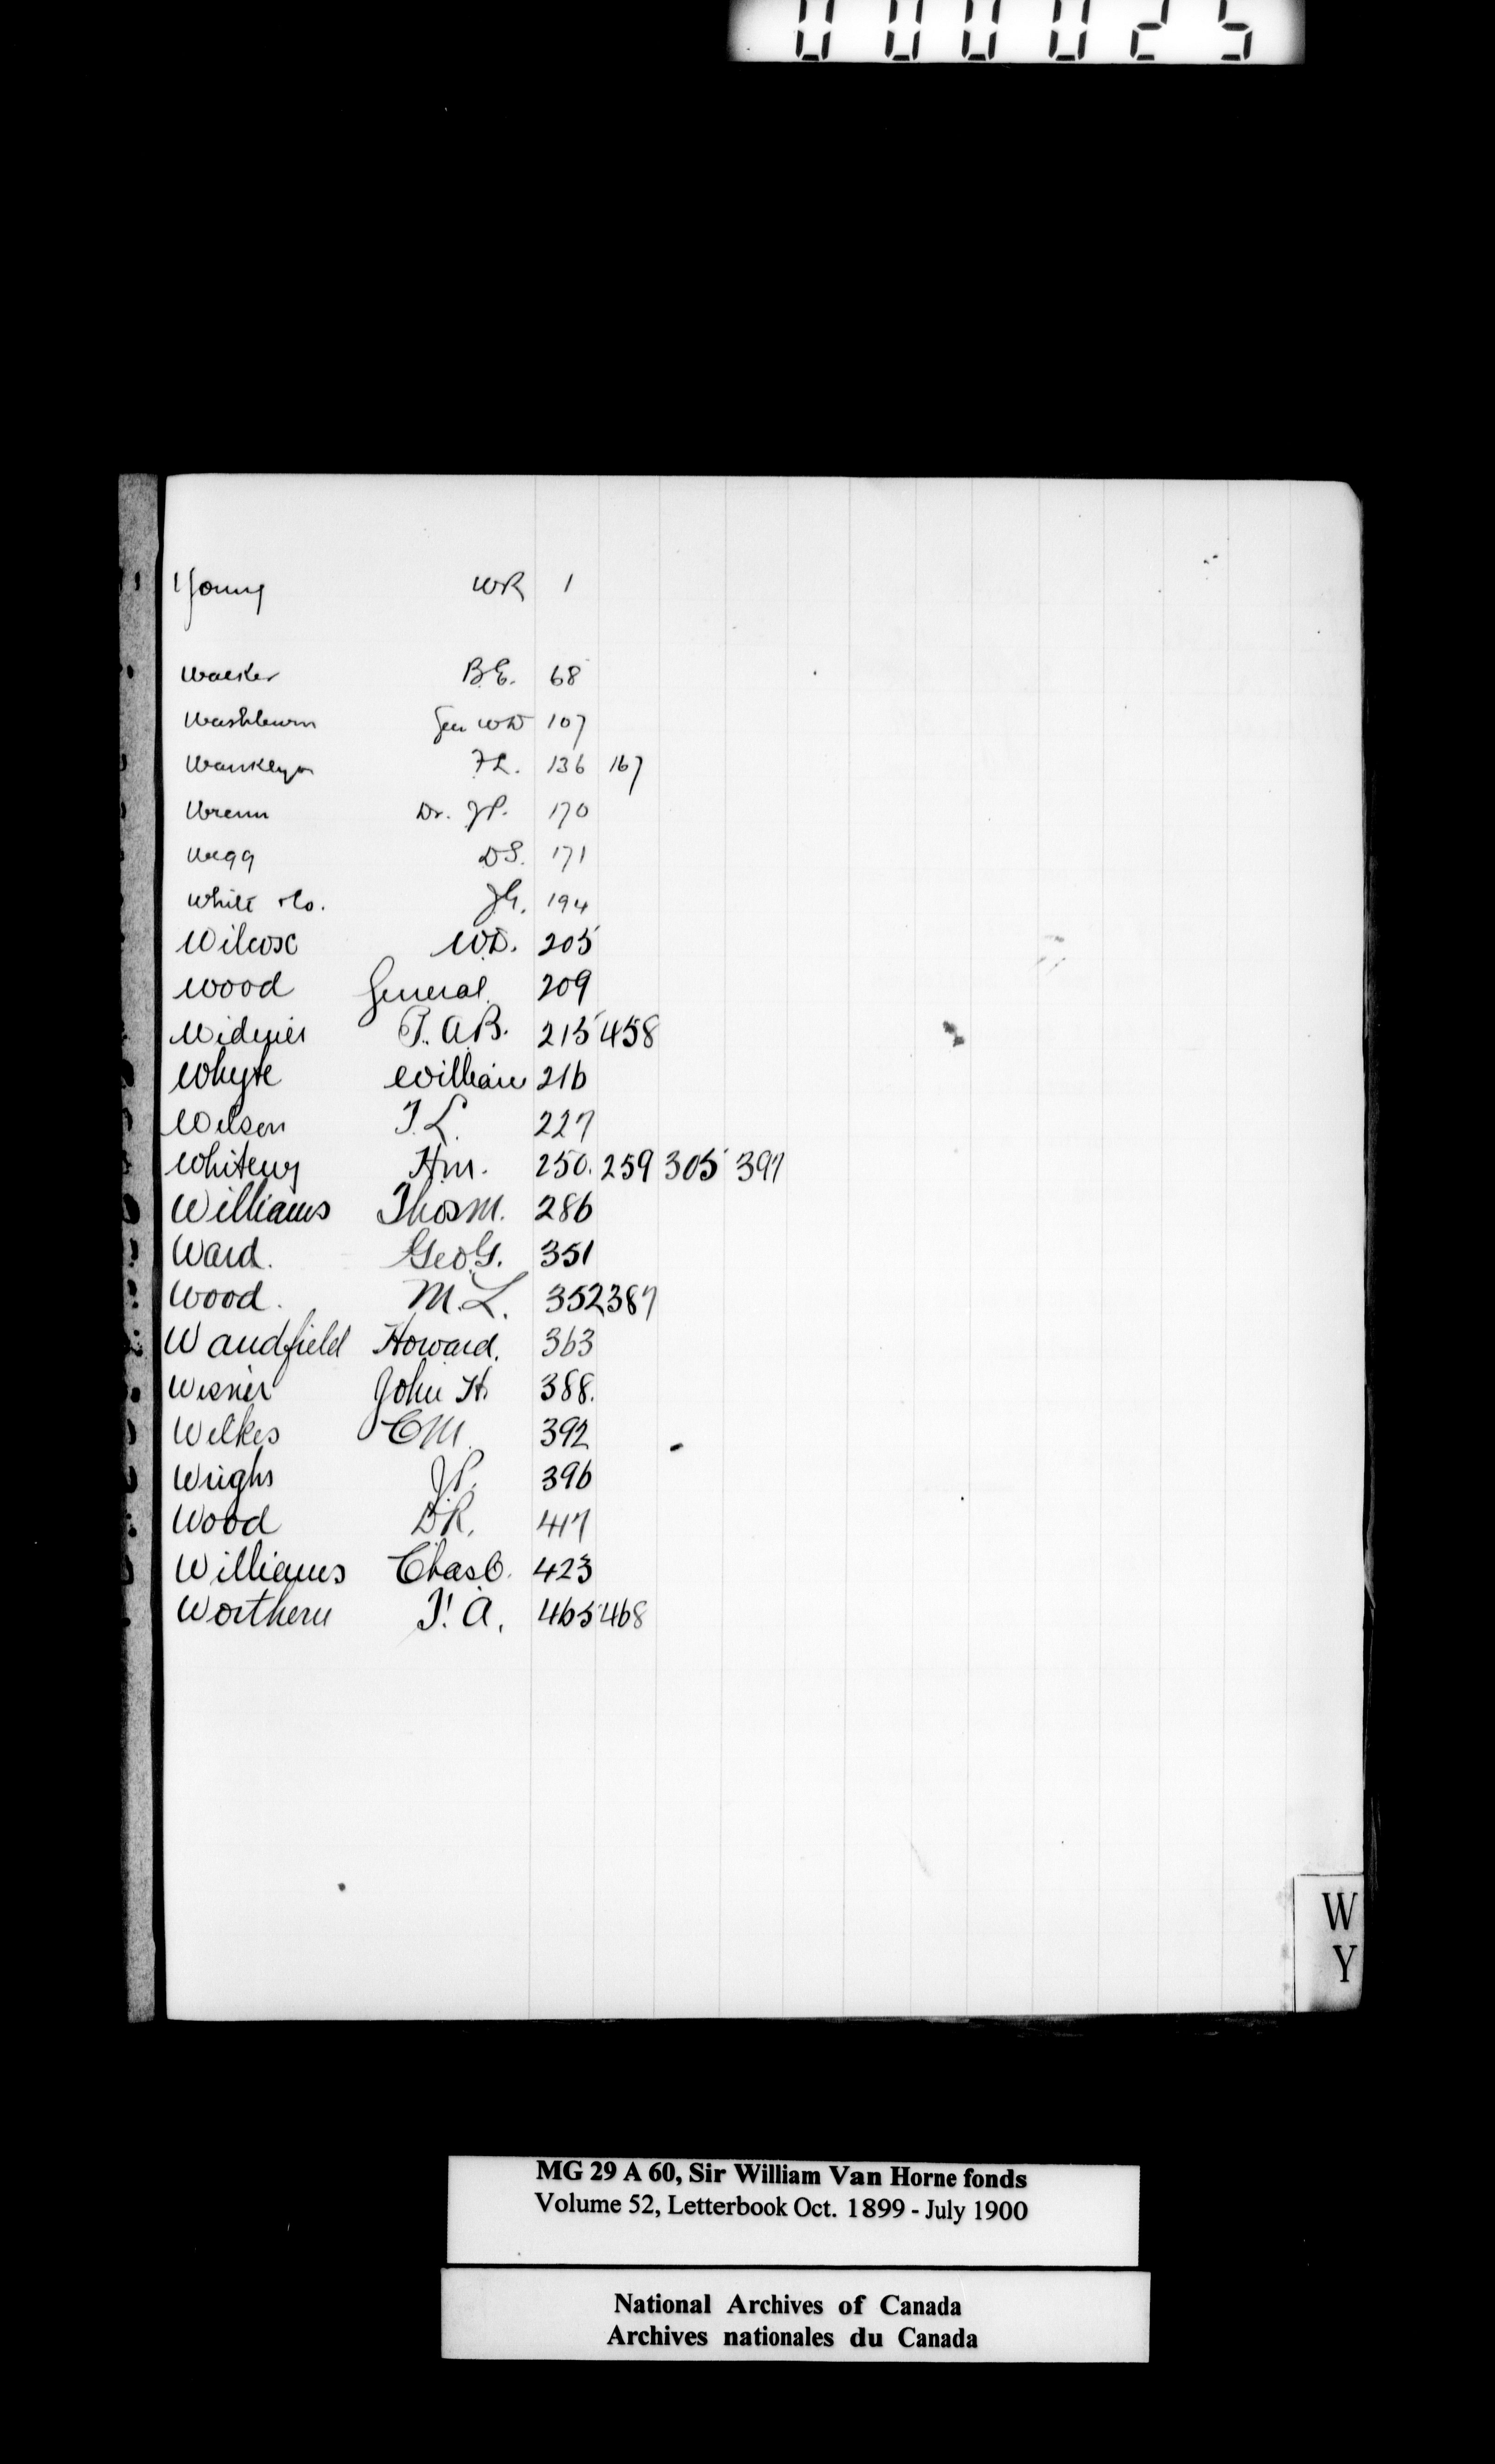 000025
Young WR 1
Walker B.E. 68
Washburn Gen WD 107
Wanklyn F.L. 136 167
Wrenn Dr. J.P. 170
Wegg D.S. 171
White & Co. J.G. 194
Wilcox W.D. 205
Wood General. 209
P.A.B. 215 458
Whyte William 216
Wilson T.L. 227
Whitney H.M. 250. 259 305 397
Williams Thos M. 286
Ward. Geo G. 351
Wood. M.L. 352 387
Wandfield Howard. 363
Wisner John H. 388.
Wilkes C M. 392
J.P. 396
Wood D.R. 417
Williams Chas C. 423
Worthern T. A. 465 468
W
Y
MG 29 A 60, Sir William Van Horne fonds
Volume 52, Letterbook Oct. 1899 - July 1900
National Archives of Canada
Archives nationales du Canada